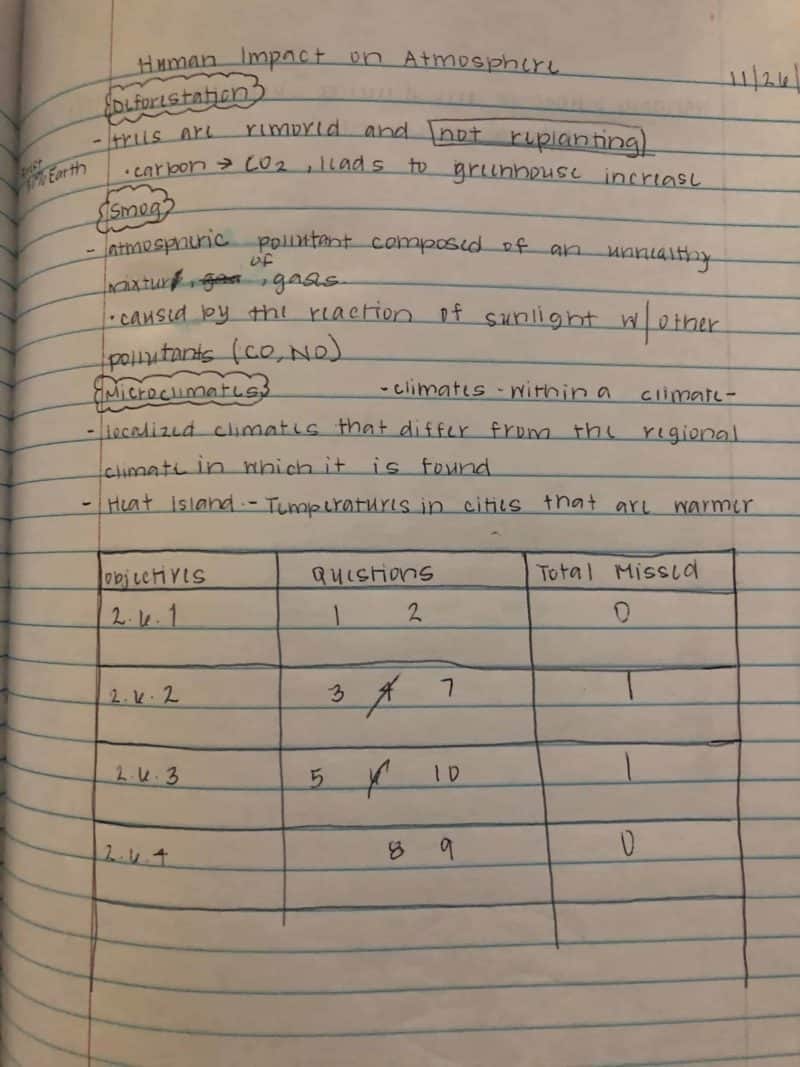 Human Impact on Atmosphere
11/26/
Deforestation
- trees are removed and not replanting
Earth · carbon → CO2, leads to greenhouse increase
Smog
- atmospheric pollutant composed of an unhealthy
mixture, of, gases.
· caused by the reaction of sunlight w/ other
pollutants (CO, NO)
Microclimates - climates - within a climate -
- localized climates that differ from the regional
climate in which it is found
- Heat Island - Temperatures in cities that are warmer
objectives Questions Total Missed
2.6.1 1 2 0
2.6.2 3 4 7 1
2.6.3 5 6 10 1
2.6.4 8 9 0